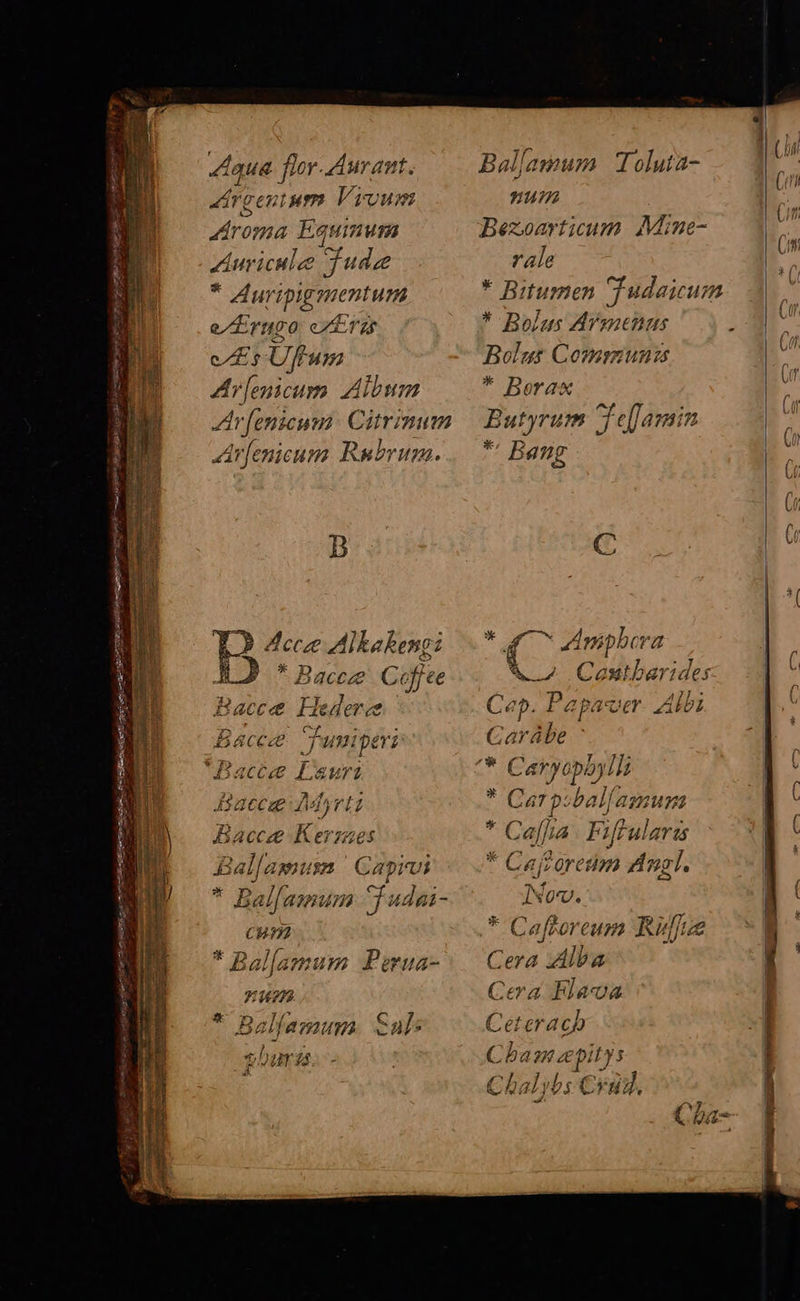 Aqua flor. Aurant.
Argentum Vivum
Aroma Equinum
Auriculæ Judæ
* Auripigmentum
Ærugo Æris
Æs Uſtum
Arſenicum Album
Arſenicum Citrinum
Arſenicum Rubrum.
B
BAccæ Alkakengi
* Baccæ Coffee
Baccæ Hederæ
Baccæ Juniperi
*Baccæ Lauri
Baccæ Myrti
Baccæ Kermes
Balſamum Capivi
* Balſamum Judai-
cum
* Balſamum Perua-
num
* Balſamum Sul-
phuris.
Balſamum Toluta-
num
Bezoarticum Mine-
rale
* Bitumen Judaicum
* Bolus Armenus
Bolus Communis
* Borax
Butyrum Jeſſamin
* Bang
C
* CAmphora
Cantharides
Cap. Papaver Albi
Carabe
* Caryophylli
* Carp:balſamum
* Caſſia Fiſtularis
* Caſtoreum Angl.
Nov.
* Caſtoreum Ruſſiæ
Cera Alba
Cera Flava
Ceterach
Chamæpitys
Chalybs Crud.
Cha-